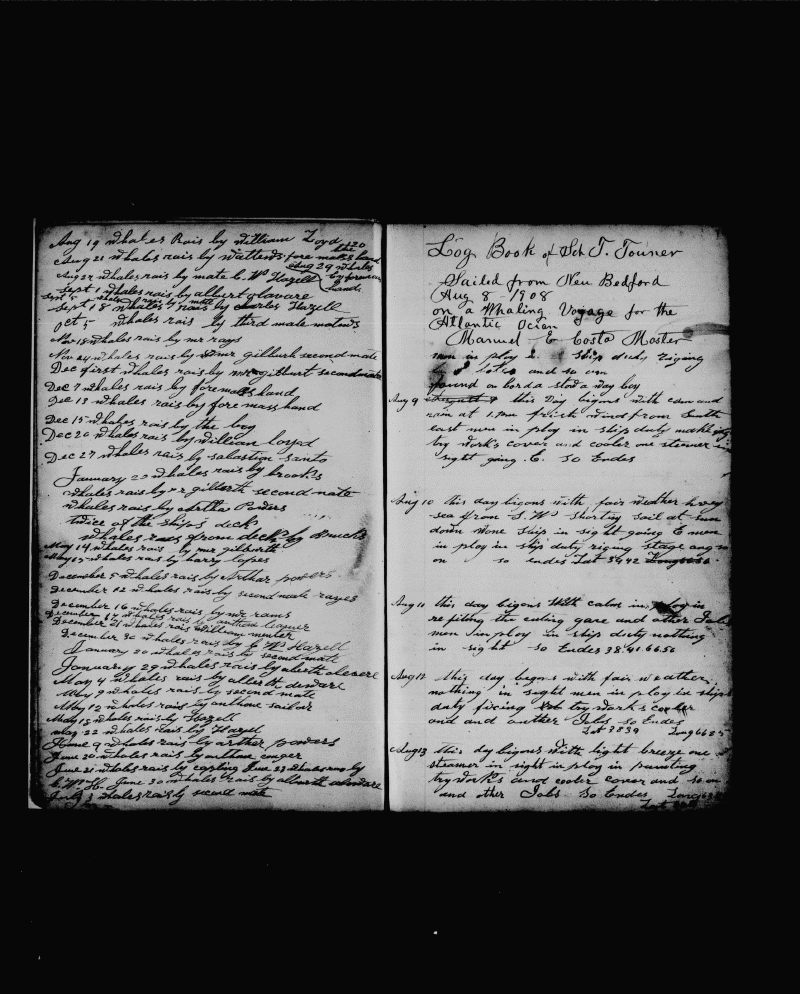 Aug 19 whales Rais by william Loyd
Aug 21 whales rais by watterns fore mast hand
Aug 29 whales
Aug 27 whales rais by mate C. W. Hazell by foreman
hands
Sept 1 whales rais by albert
Sept 18 whales rais by Charles Hazell
Oct 5 whales rais by third mate
Nov 18 whales rais by mr rays
Nov 24 whales rais by mr gilburth second mate
Dec first whales rais by mr gilburt second mate
Dec 7 whales rais by foremast hand
Dec 13 whales rais by fore mass hand
Dec 15 whales rais by the boy
Dec 20 whales rais by william loyed
Dec 27 whales rais by salastion santo
January 20 whales rais by brooks
whales rais by mr gilberth second mate
whales rais by Artha Powers
twice of the ship's deck
whales rais from deck by
May 14 whales rais by mr gilberth
May 15 whales rais by harry lopes
December 5 whales rais by Arthar powers
December 12 whales rais by second mate rayes
December 16 whales rais by mr rams
December 17 whales rais by
December 21 whales rais william
December 30 whales rais by C W Hazell
January 20 whales rais by second mate
January 29 whales rais by
May 4 whales rais by
May 9 whales rais by second mate
May 12 whales rais by anthone sailor
May 18 whales rais by Hazell
may 22 whales rais by Hazell
June 9 whales rais by arther powers
June 20 whales rais by conger
June 21 whales rais by June 23 whales rais by
C. W. H. June 30 whales rais by
July 3 whales rais by second mate
Log Book of Sch T. Towner
Sailed from New Bedford
Aug 8 - 1908
on a Whaling Voyage for the
Atlantic Ocian
Manuel E Costa Master
men in ploy in ship duty riging
and so on
found on borda stod a way boy
Aug 9 this day bigons with cam and
rain at 1 P.M. frish wind from South
east men in ploy in ships duty making
try work's cover and cooler one steamer in
sight going E. So Endes
Aug 10 this day bigons with fair weather hevy
sea from S.W. shorting sail at sun
down wone ship in sight going E men
in ploy in ship duty riging stage and so
on so endes Lat 3942
Aug 11 this day bigons with calm in ploy in
refiting the cuting gare and other Jobs
men in ploy in ships duty nothing
in sight so Endes 38.41.6656
Aug 12 this day begons with fair weather
nothing in sight men in ploy in ships
duty fixing try works cooler
and and outher Jobs so Endes
Lat 3839 Long 6625
Aug 13 this dy bigones with light breeze one
steamer in sight in ploy in painting
try work's and cooler cover and so on
and other Jobs So Endes Long